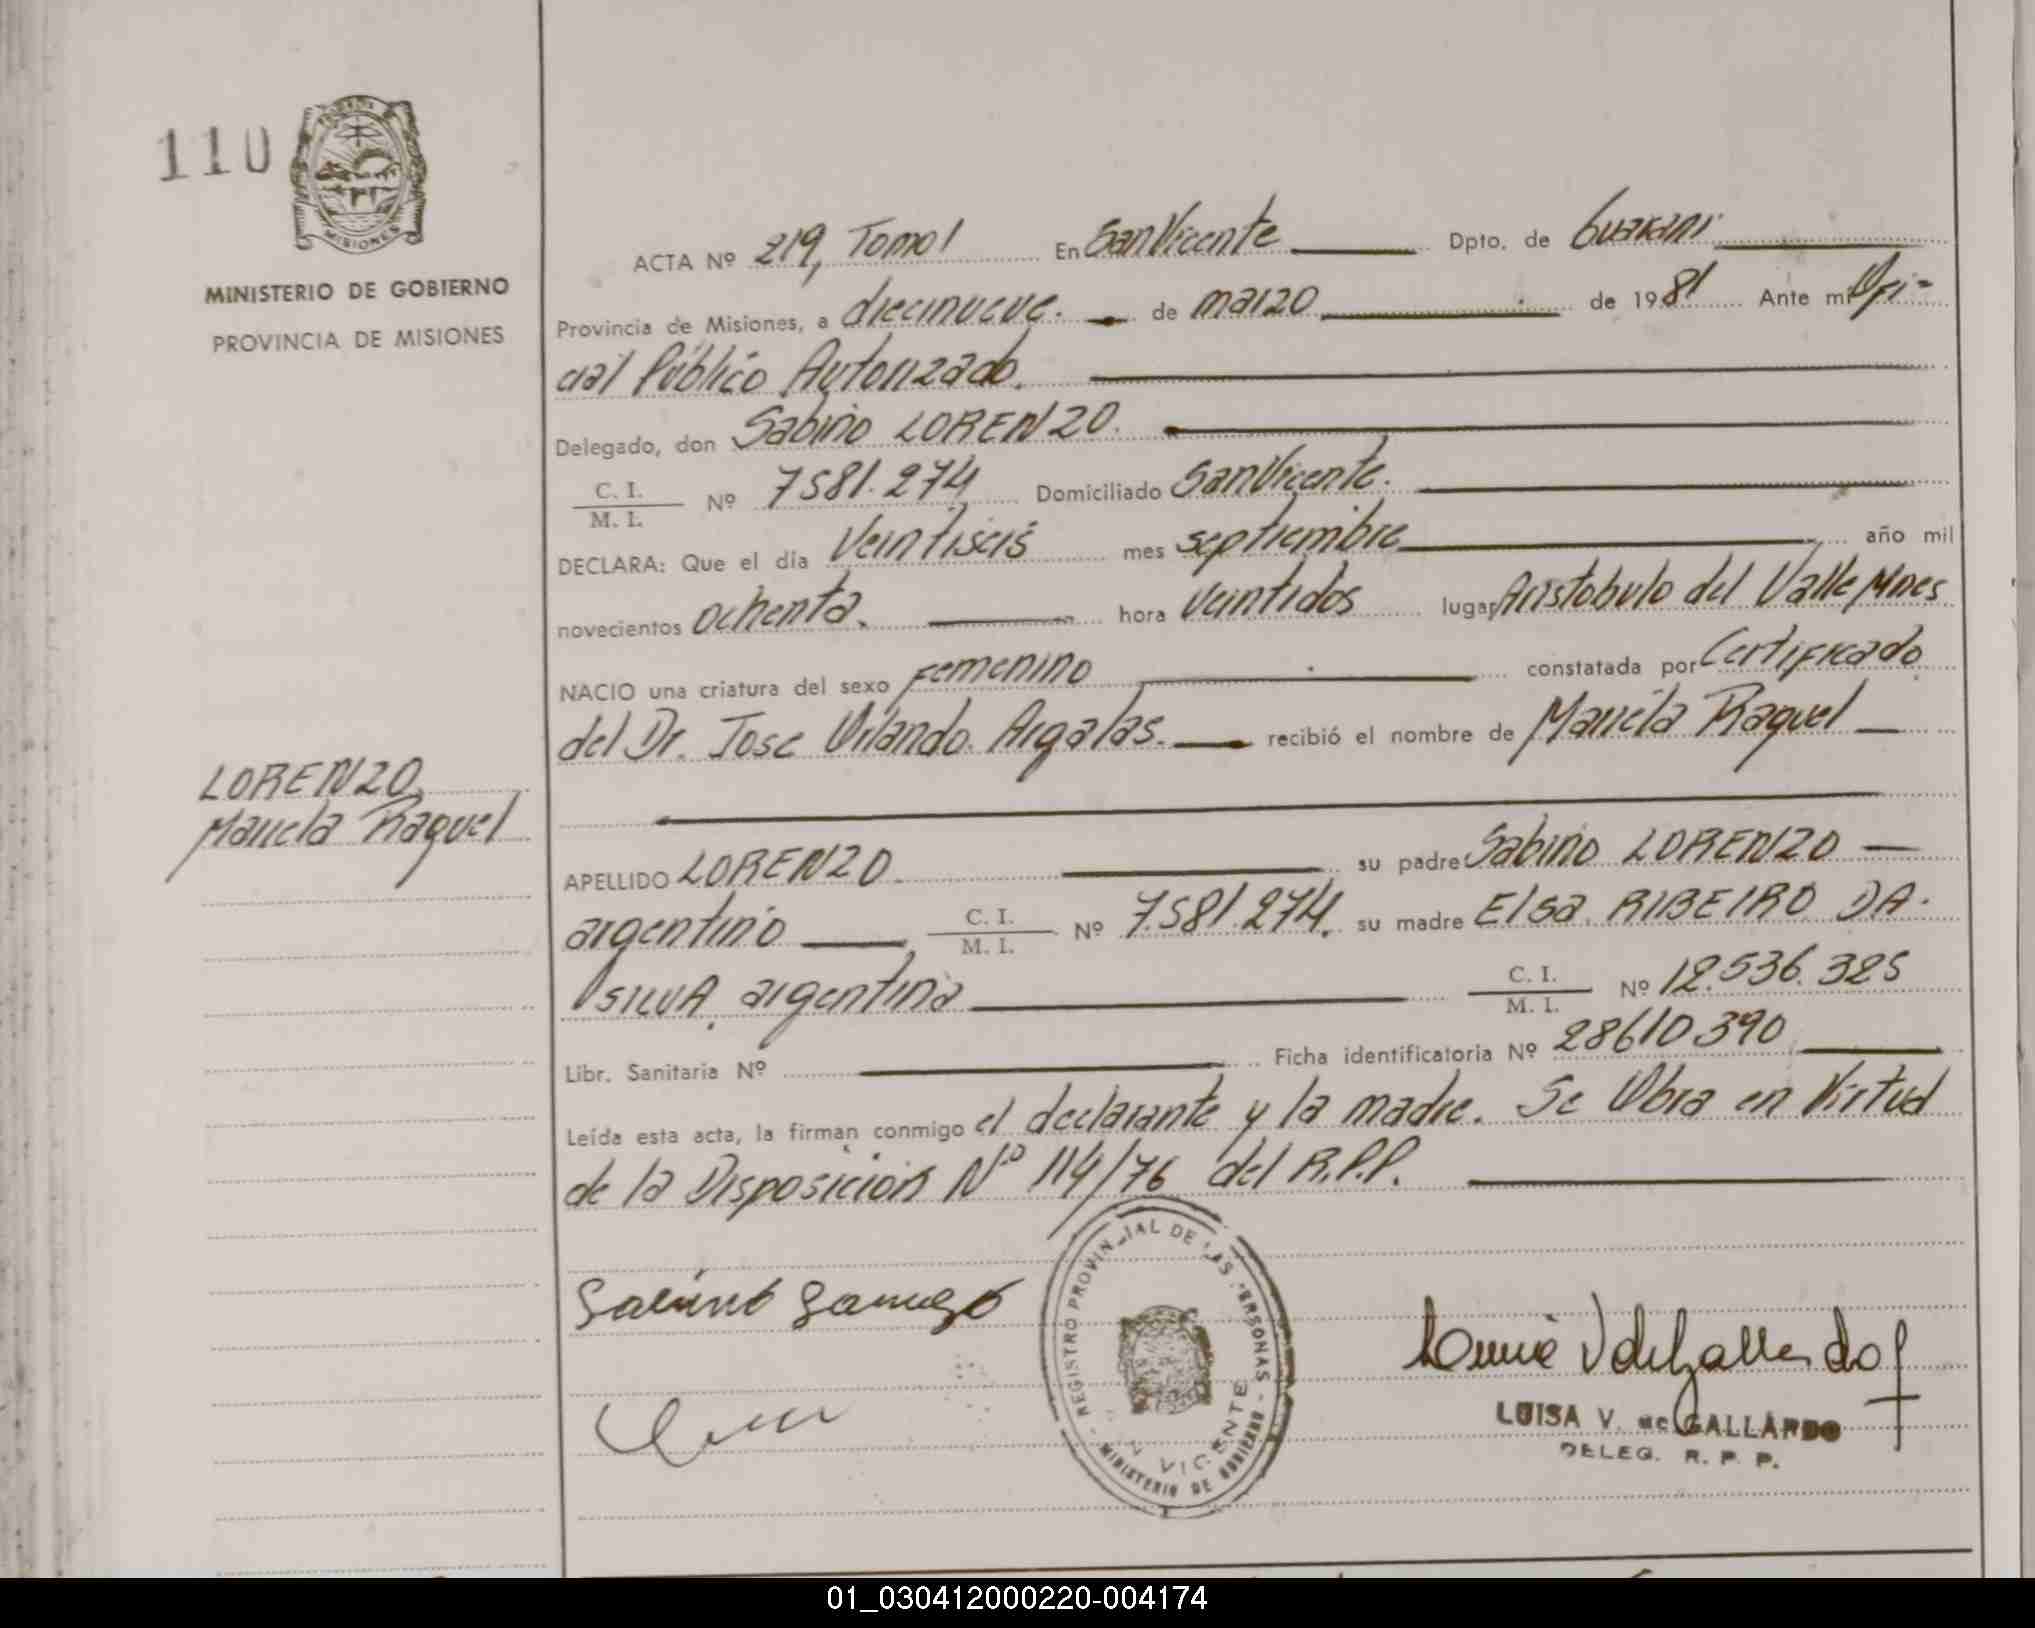 110
MISIONES
MINISTERIO DE GOBIERNO
PROVINCIA DE MISIONES
ACTA Nº 219, Tomo I En San Vicente Dpto. de Guarani
Provincia de Misiones, a diecinueve. de marzo de 1981 Ante mi Ofi-
cial Público Autorizado.
Delegado, don Sabino LORENZO.
C. I. / M. I. Nº 7581.274 Domiciliado San Vicente.
DECLARA: Que el día Veintiseis mes septiembre año mil
novecientos ochenta. hora veintidos lugar Aristobulo del Valle Mnes
NACIO una criatura del sexo Femenino constatada por Certificado
del Dr. Jose Orlando Argalas. recibió el nombre de Mariela Raquel
LORENZO
Mariela Raquel
APELLIDO LORENZO su padre Sabino LORENZO
argentino C. I. / M. I. Nº 7.581.274. su madre Elsa RIBEIRO DA
SILVA, argentina C. I. / M. I. Nº 12.536.325
Libr. Sanitaria Nº Ficha identificatoria Nº 28610390
Leída esta acta, la firman conmigo el declarante y la madre. Se Obra en Virtud
de la Disposición Nº 114/76 del R.P.P.
REGISTRO PROVINCIAL DE LAS PERSONAS
VICENTE
MINISTERIO DE GOBIERNO
LUISA V. de GALLARDO
DELEG. R. P. P.
01_030412000220-004174